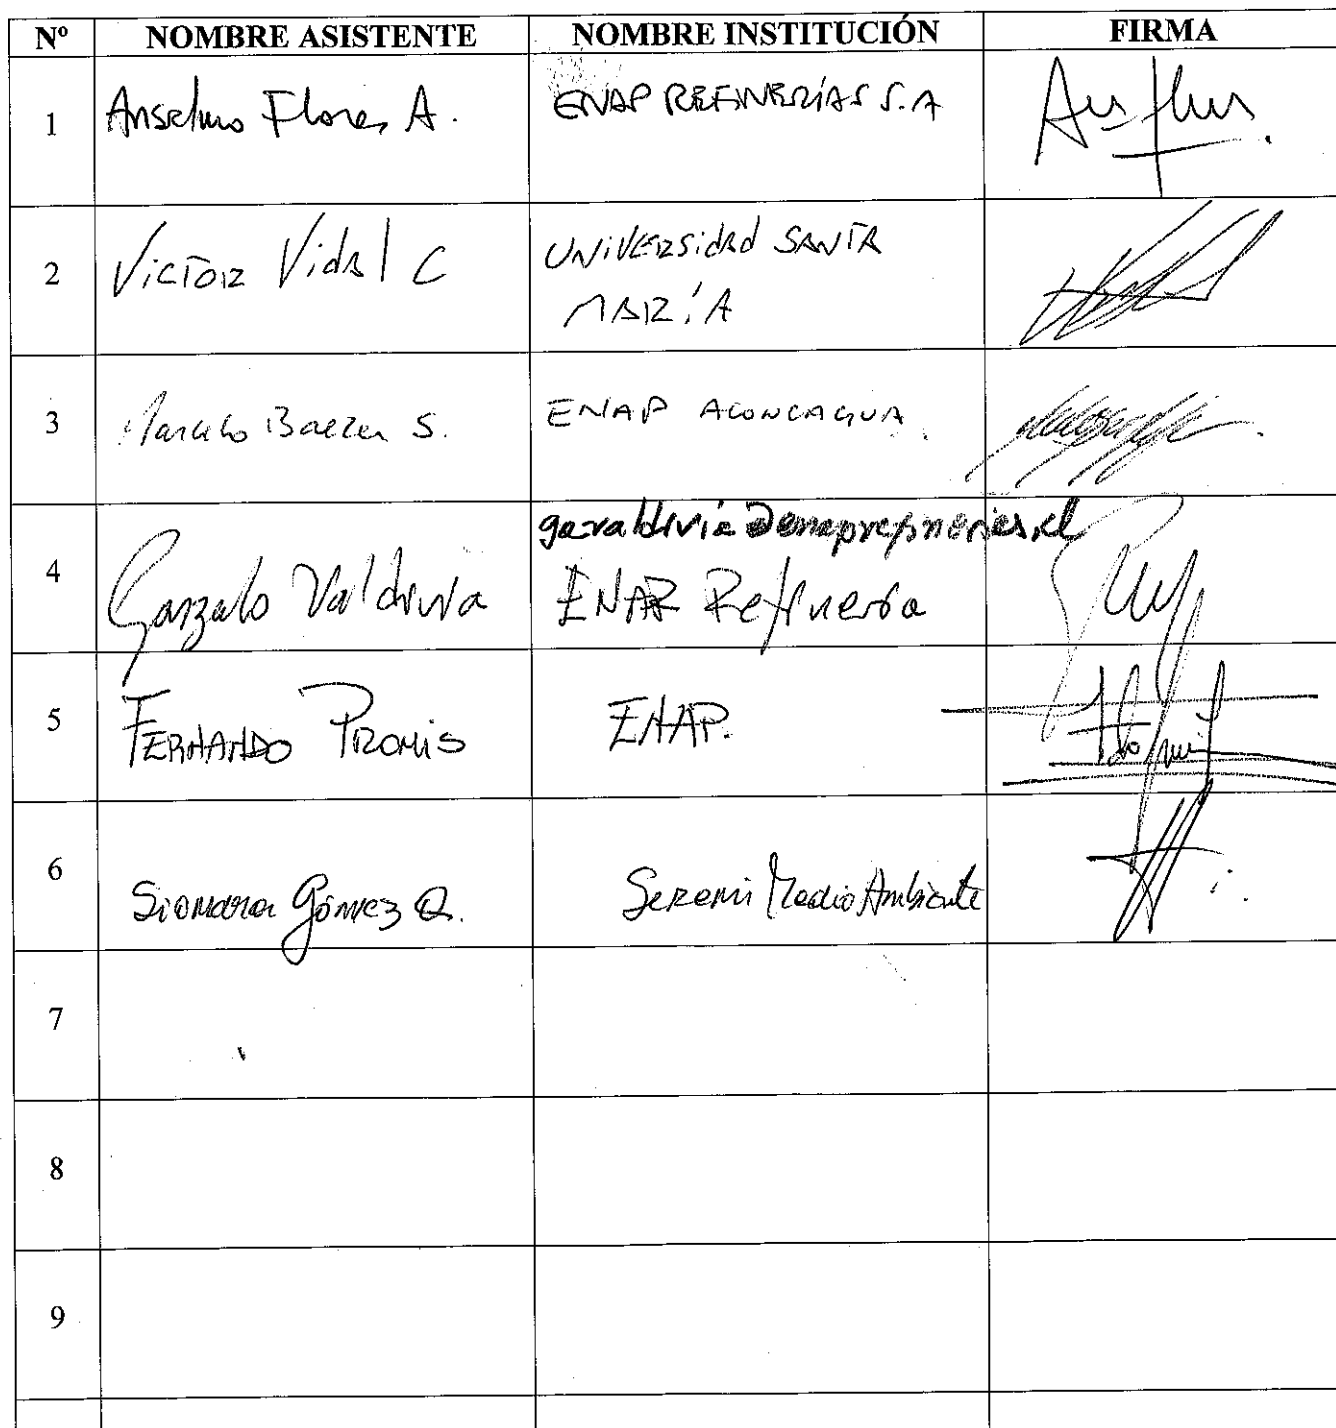 Nº NOMBRE ASISTENTE NOMBRE INSTITUCIÓN FIRMA
1 Anselmo Flores A. ENAP REFINERÍAS S.A
2 Victor Vidal C UNIVERSIdAd SANTA
MARÍA
3 Marcelo Baeza S. ENAP ACONCAGUA.
gavaldivia@enaprefinerias.cl
4 Gonzalo Valdivia ENAP Refinería
5 FERNANDO PROMIS ENAP.
6 Siomara Gómez Q. Seremi Medio Ambiente
7
8
9